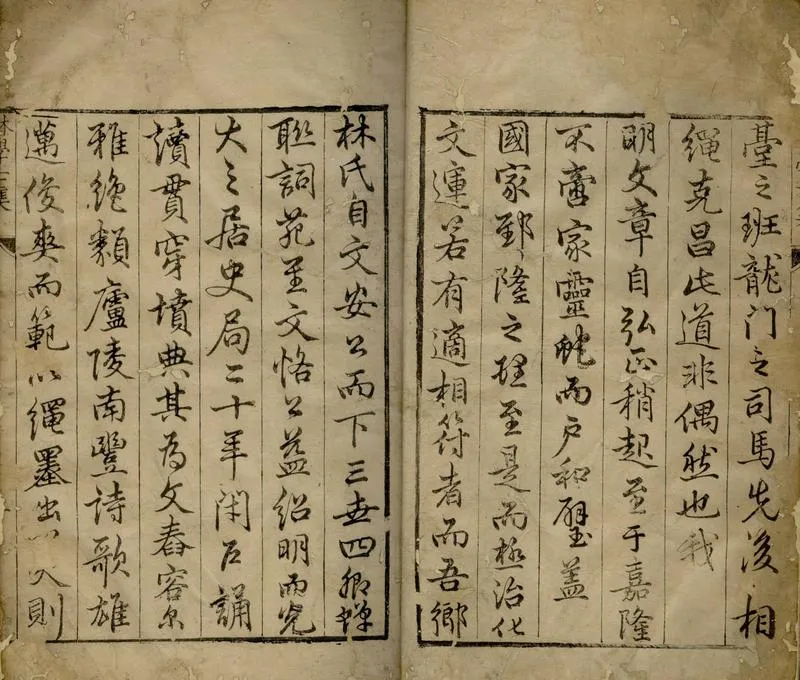 臺之班龍门之司馬先後相
繩克昌此道非偶然也我
明文章自弘正稍起至于嘉隆
不啻家靈虵而戶和璧蓋
國家郅隆之理至是而極治化
文運若有適相符者而吾鄉
林氏自文安公而下三世四卿蟬
聯詞苑至文恪公益紹明而光
大之居史局二十年閉户誦
讀貫穿墳典其為文舂容尔
雅絶類廬陵南豐詩歌雄
邁俊爽而範以繩墨出則